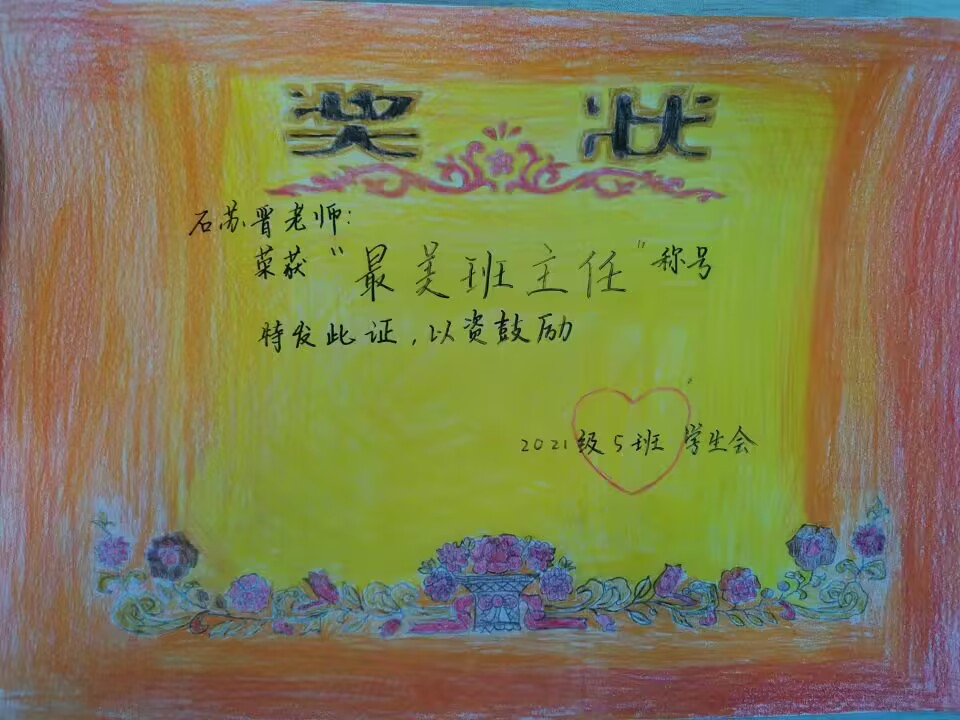 奖状
石苏晋老师：
荣获“最美班主任”称号
特发此证，以资鼓励
2021级5班 学生会